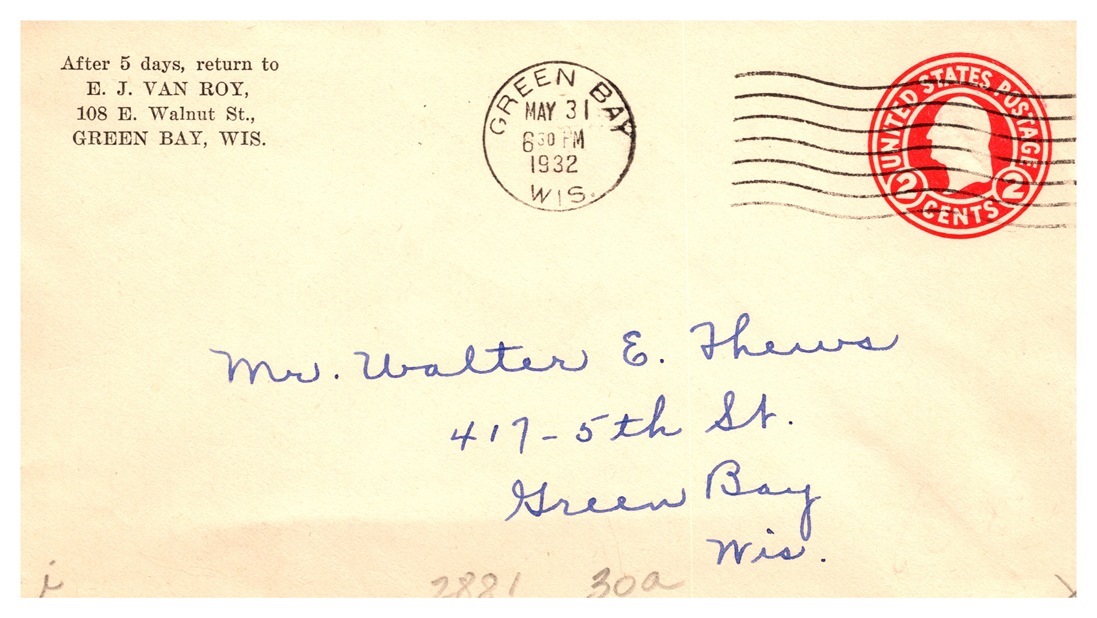 After 5 days, return to
E. J. VAN ROY,
108 E. Walnut St.,
GREEN BAY, WIS.
GREEN BAY
MAY 31
6 30 PM
1932
WIS.
UNITED STATES POSTAGE
2 CENTS 2
Mr. Walter E. Thews
417-5th St.
Green Bay
Wis.
i 2881 30a